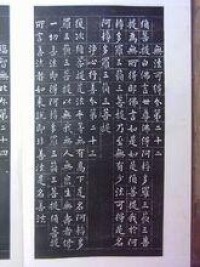 無法可得分第二十二
須菩提白佛言世尊佛得阿耨多羅三藐三菩
提為無所得耶佛言如是如是須菩提我於阿
耨多羅三藐三菩提乃至無有少法可得是名
阿耨多羅三藐三菩提
淨心行善分第二十三
復次須菩提是法平等無有高下是名阿耨多
羅三藐三菩提以無我無人無眾生無壽者修
一切善法即得阿耨多羅三藐三菩提須菩提
所言善法者如來說即非善法是名善法
福智無比分第二十四